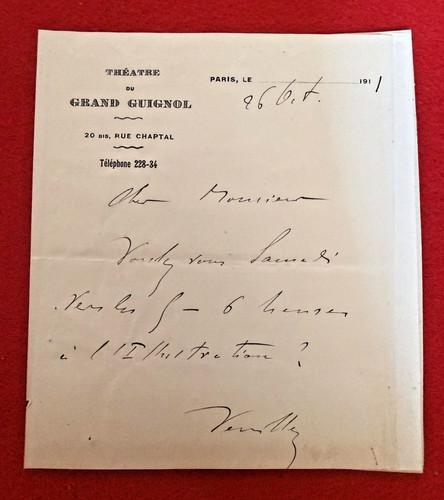 THÉATRE
DU
GRAND GUIGNOL
20 BIS, RUE CHAPTAL
Téléphone 228-34
PARIS, LE 26 Oct. 1911
Cher Monsieur
Voulez vous Samedi
vers les 5 - 6 heures
à l'Illustration ?